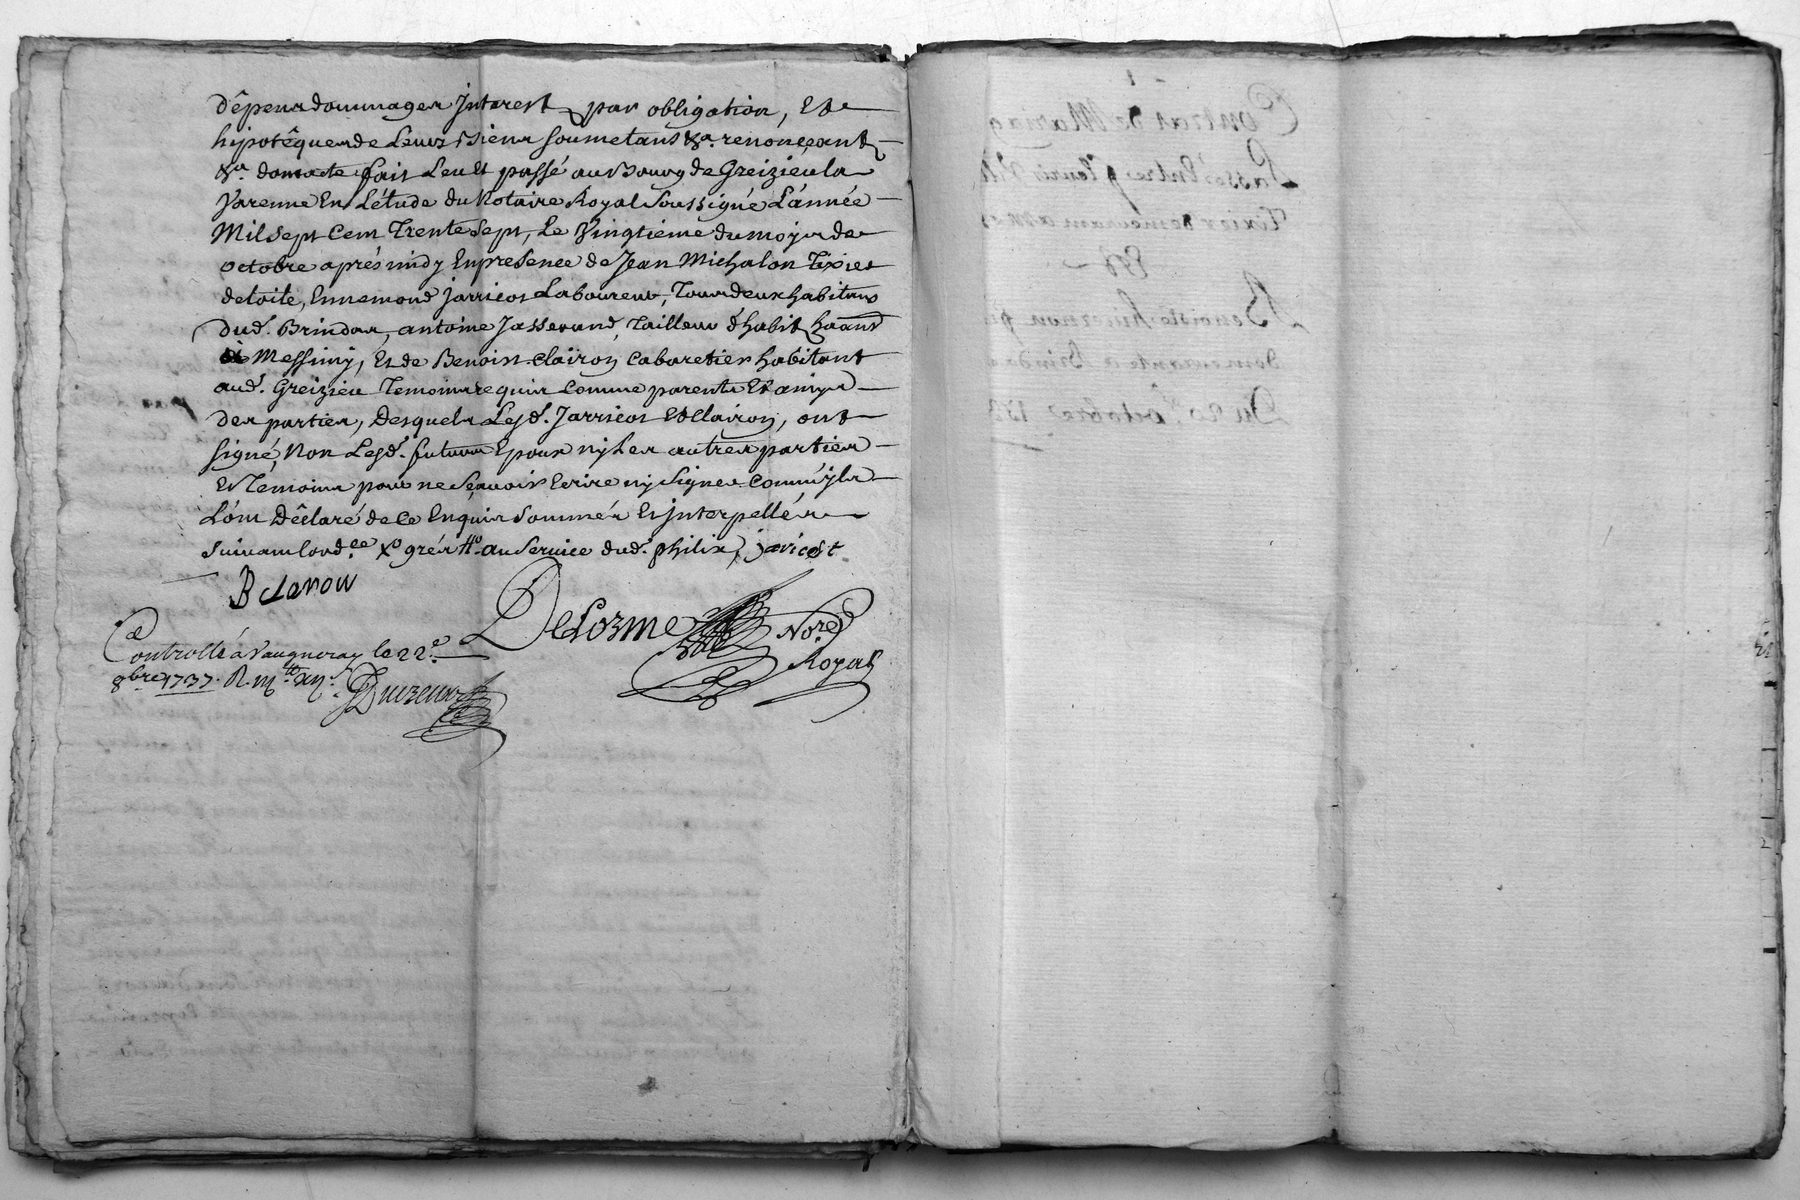 dêpens dommages Interest par obligation, Et
hipotêques de Leurs biens soumetans &a. renonçant
&a. dont acte fait Leu Et passé au Bourg de Greizieu la
Varenne En L'étude du Notaire Royal Soussigné L'année
Mil sept Cent Trente sept, Le Vingtieme du mojs de
octobre aprés midy En presence de Jean Michalon Tixier
de toile, Ennemond Jarricot Laboureur, Tous deux habitans
dud. Brindas, antoine Jasserand, Tailleur d'habit hbant
à Messimy, Et de Benoist Claïron Cabaretier habitant
aud. Greizieu Temoins requis Comme parents Et amys
des parties, Desquels Lesd. Jarricot Et Clairon, ont
signé, Non Lesd. futurs Epoux ny Les autres parties
Et Temoins pour ne Sçavoir Ecrire ny Signer Comm'ils
L'ont Dêclaré de Ce Enquis Sommés Et jnterpellés
suivant lord.ce au Service dud. philix, jaricot
B Claron
DeLorme No.re
Royal
Controllé à Vaugneray le 22e.
8bre 1737. R.
Contrat de Mariag
Passé Entre fleuris
Tixier demeurant a
Et
Benoiste
demeurante à Brinda
Du 20e. octobre 173